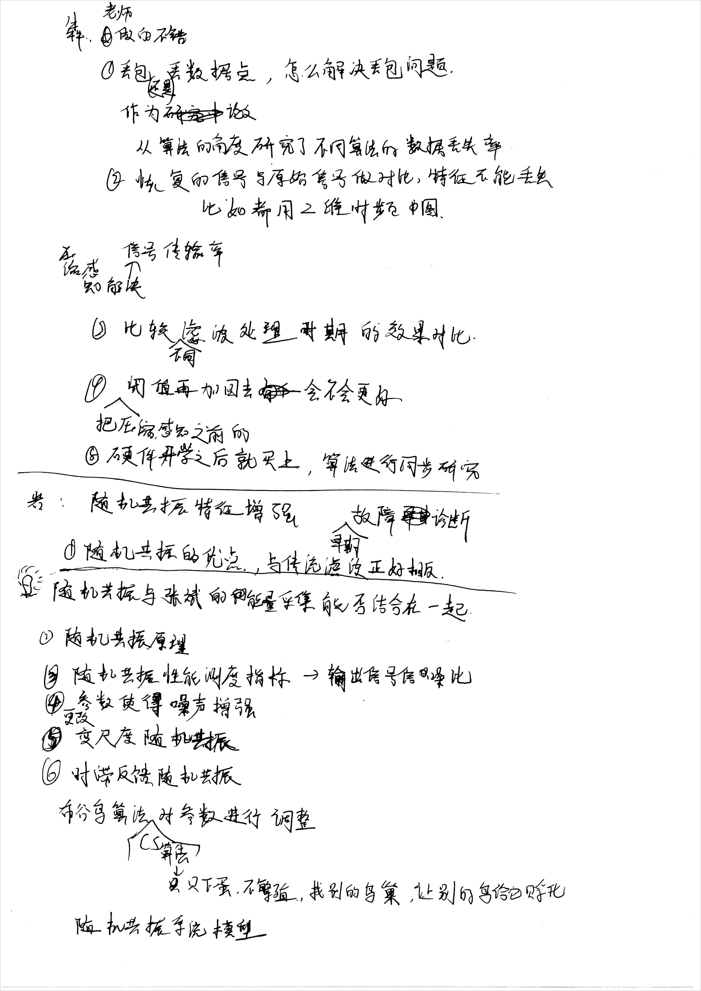 老师
做的不错
①丢包还是丢数据点，怎么解决丢包问题.
作为论文
从算法的角度研究了不同算法的数据丢失率
②恢复的信号与原始信号做对比，特征不能丢失
比如都用2维时频图.
信号传输率
压缩感知解决
③比较不同滤波处理时期的效果对比.
④阈值再加回去会不会更好
把压缩感知之前的
⑤硬件开学之后就买上，算法进行同步研究
随机共振特征增强 早期故障诊断
①随机共振的优点，与传统滤波正好相反.
随机共振与张斌的能量采集能否结合在一起.
②随机共振原理
③随机共振性能测度指标→输出信号信噪比
④更改参数使得噪声增强
⑤变尺度随机共振
⑥时滞反馈随机共振
布谷鸟算法对参数进行调整
CS算法
只下蛋，不筑，找别的鸟巢，让别的鸟给它孵化
随机共振系统模型